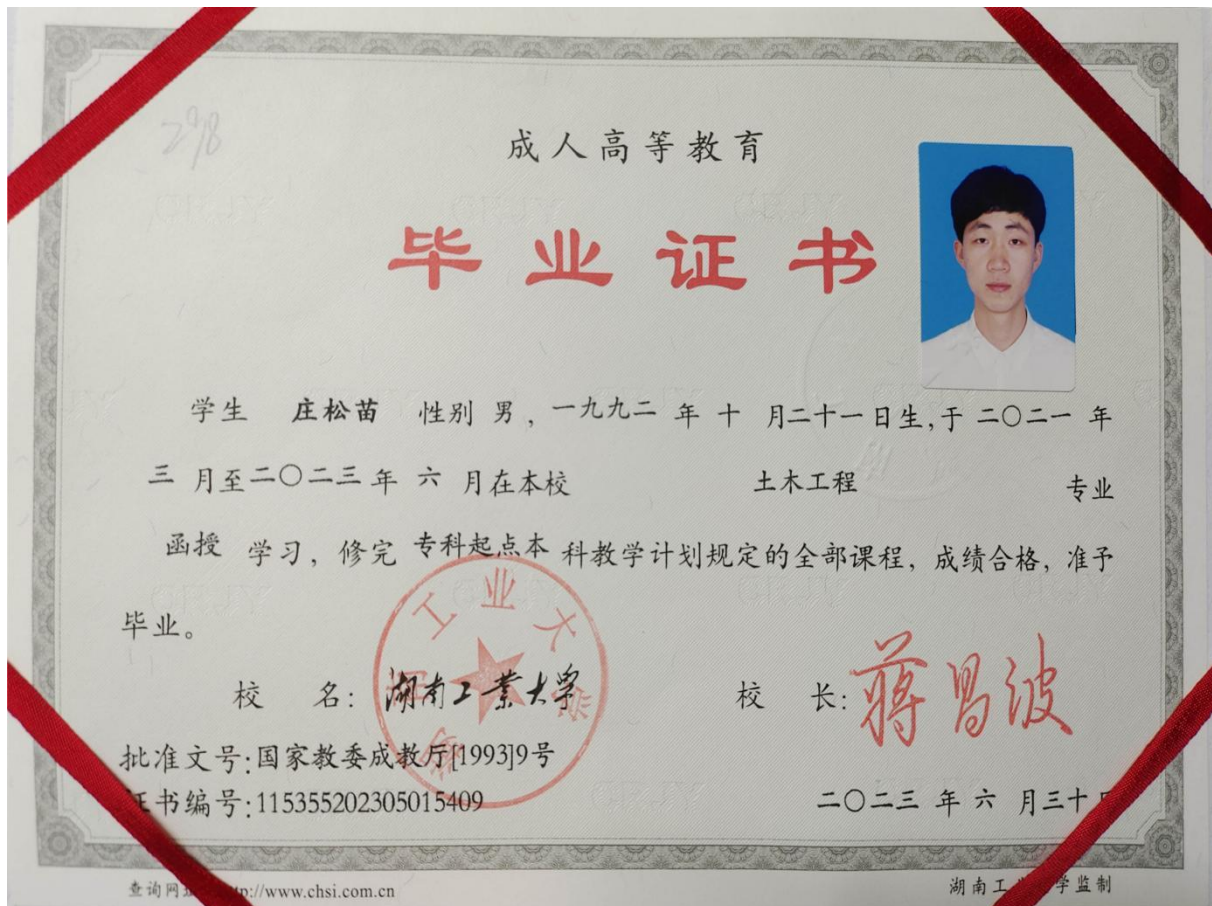 298
成人高等教育
毕业证书
学生 庄松苗 性别 男，一九九二 年 十 月二十一日生，于 二〇二一 年
三 月至二〇二三年 六 月在本校 土木工程 专业
函授 学习，修完 专科起点本 科教学计划规定的全部课程，成绩合格，准予
毕业。
校 名：湖南工業大學 校 长：蒋昌波
批准文号:国家教委成教厅[1993]9号
证书编号:115355202305015409 二〇二三 年 六 月三十日
查询网址 http://www.chsi.com.cn 湖南工业大学监制